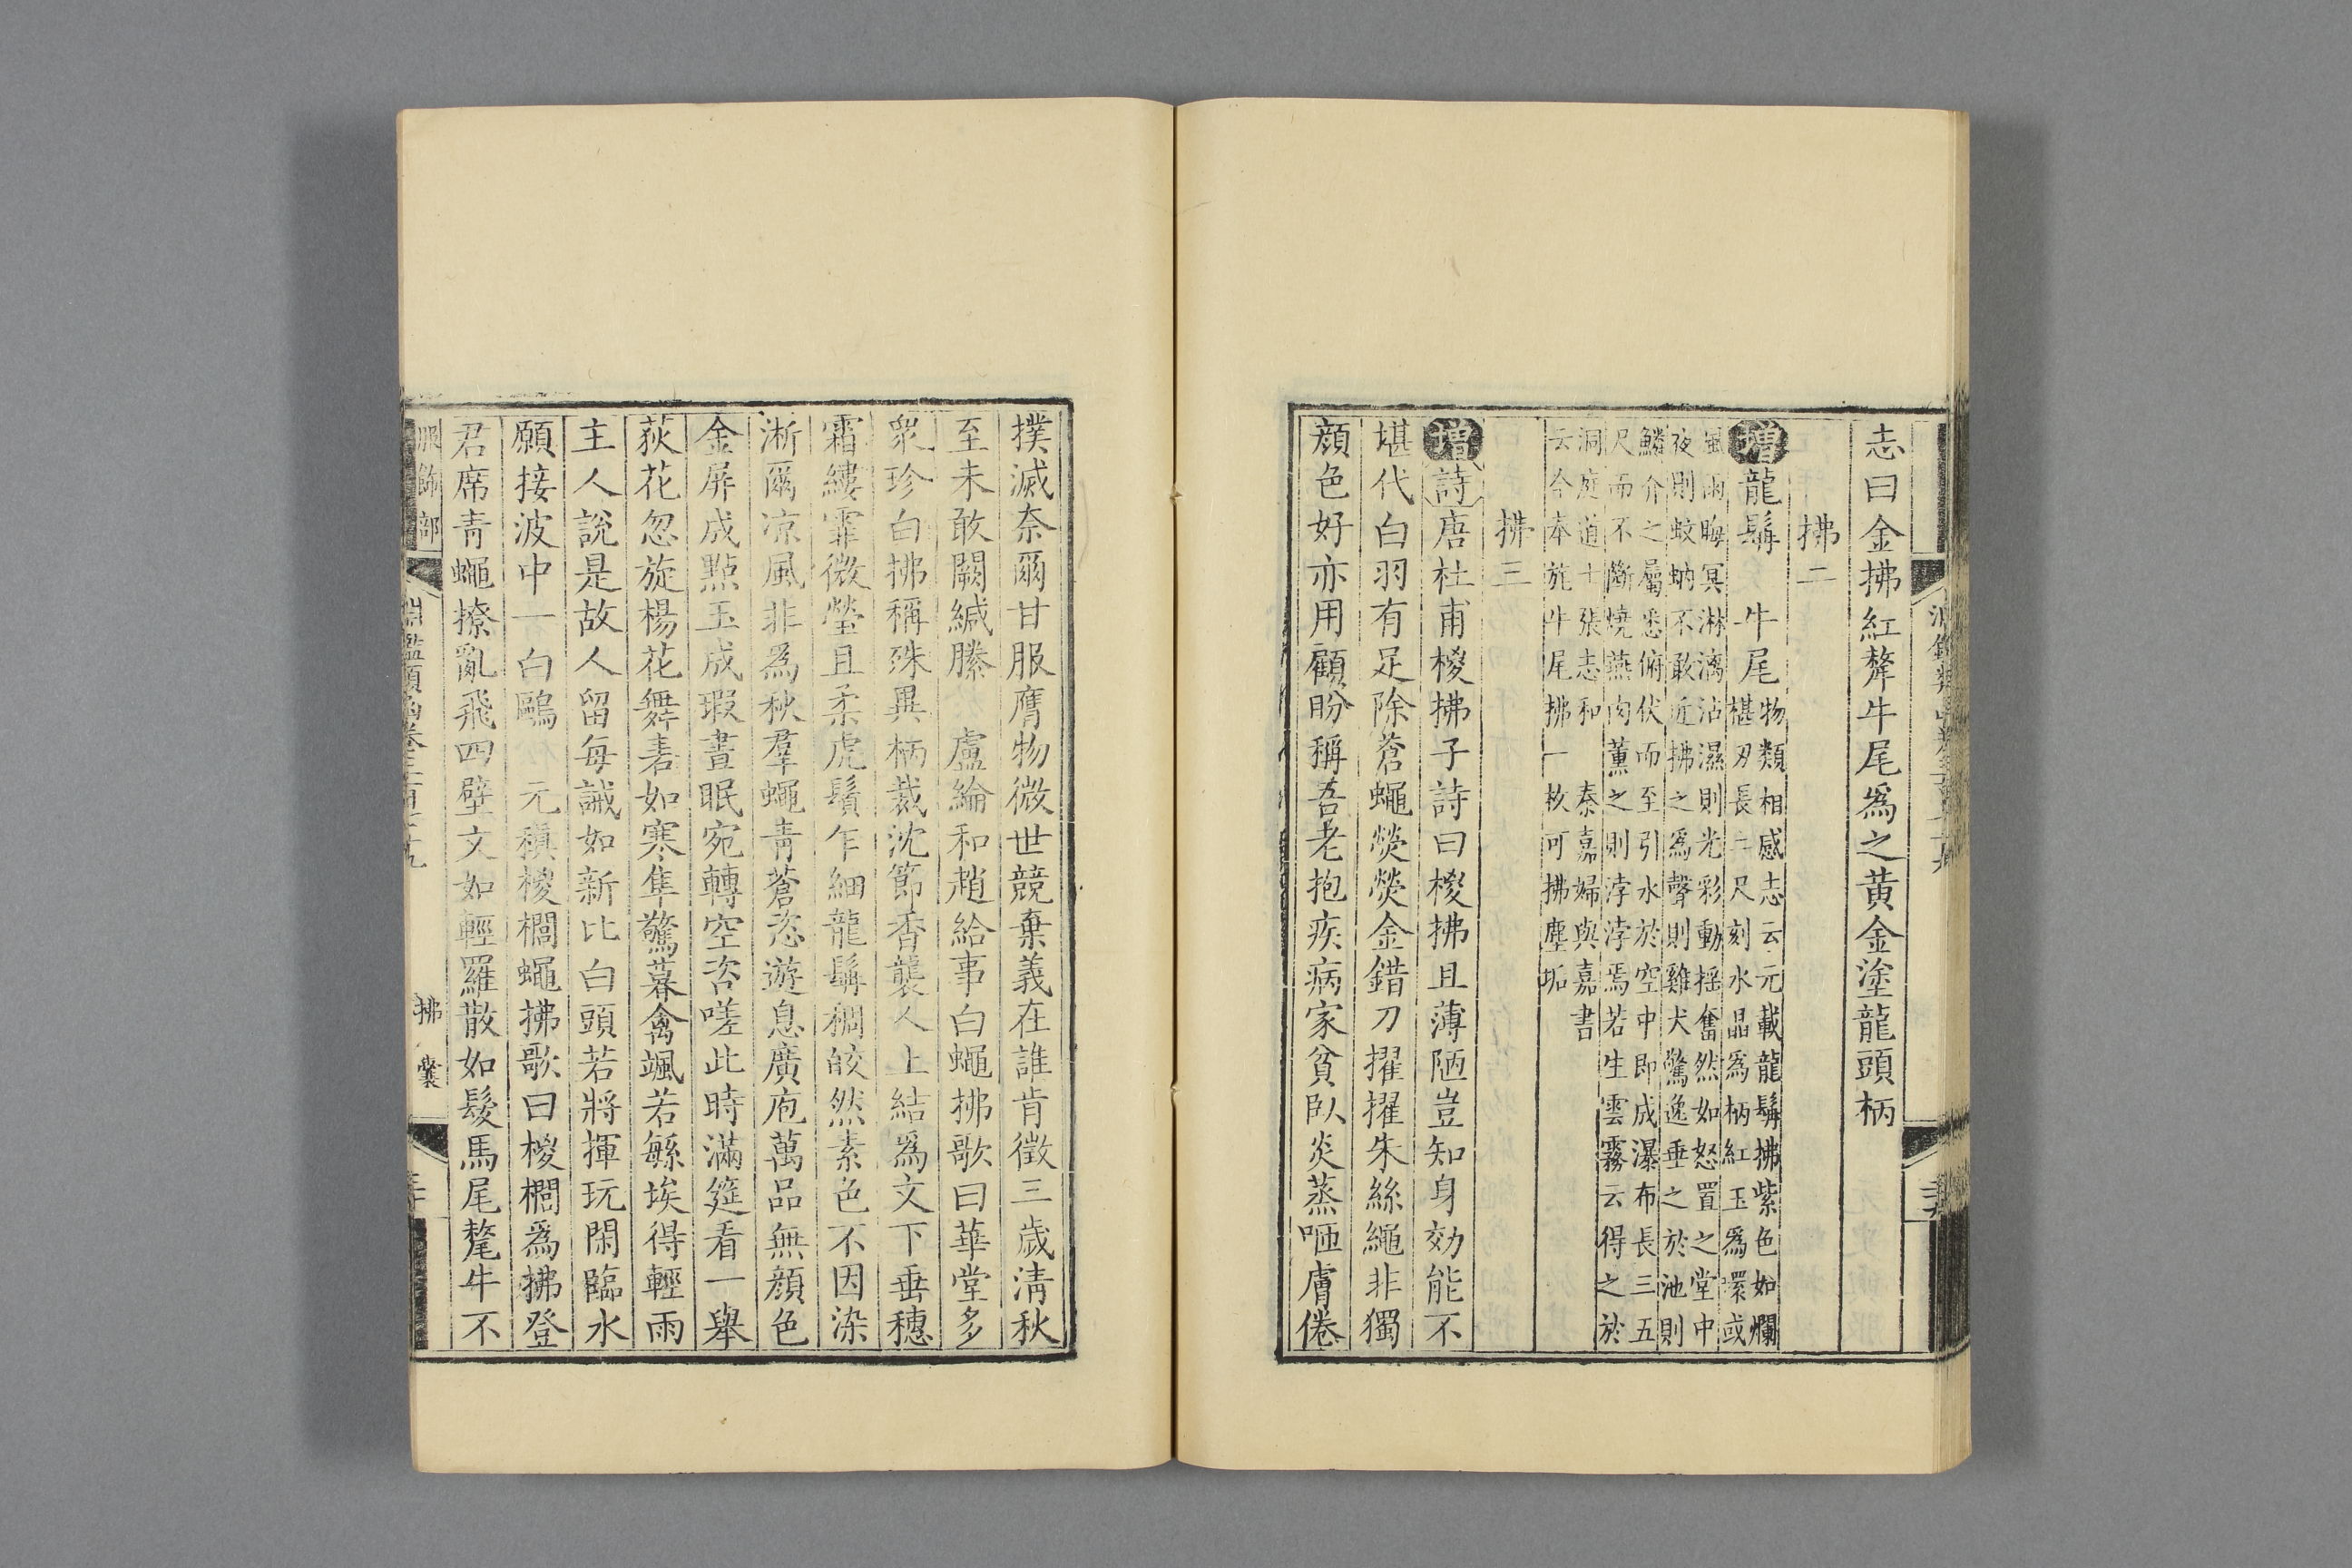 志曰金拂紅犛牛尾爲之黃金塗龍頭柄
拂二
增龍髯 牛尾物類相感志云元載龍髯拂紫色如爛
椹刃長二尺刻水晶爲柄紅玉爲環或
風雨晦冥淋漓沾濕則光彩動揺奮然如怒置之堂中
夜則蚊蚋不敢近拂之爲聲則雞犬驚逸垂之於池則
鱗介之屬悉俯伏而至引水於空中即成瀑布長三五
尺而不斷燒燕肉薰之則浡浡焉若生雲霧云得之於
洞庭道士張志和 秦嘉婦與嘉書
云今奉旄牛尾拂一枚可拂塵垢
拂三
增詩唐杜甫椶拂子詩曰椶拂且薄陋豈知身効能不
堪代白羽有足除蒼蠅熒熒金錯刀擢擢朱絲繩非獨
顏色好亦用顧盼稱吾老抱疾病家貧臥炎蒸咂膚倦
撲滅奈爾甘服膺物微世競棄義在誰肯徵三歲淸秋
至未敢闕緘縢 盧綸和趙給事白蠅拂歌曰華堂多
衆珍白拂稱殊異柄裁沈節香襲人上結爲文下垂穗
霜縷霏微瑩且柔虎鬚乍細龍髯稠皎然素色不因染
淅爾凉風非爲秋羣蠅青蒼恣遊息廣庖萬品無顏色
金屏成點玉成瑕晝眠宛轉空咨嗟此時滿筵看一舉
荻花忽旋楊花舞砉如寒隼驚暮禽颯若繁埃得輕雨
主人說是故人留每誡如新比白頭若將揮玩閑臨水
願接波中一白鷗 元稹椶櫚蠅拂歌曰椶櫚爲拂登
君席青蠅撩亂飛四壁文如輕羅散如髮馬尾氂牛不
服飾部 淵鑑類函卷三百七十九 拂 囊